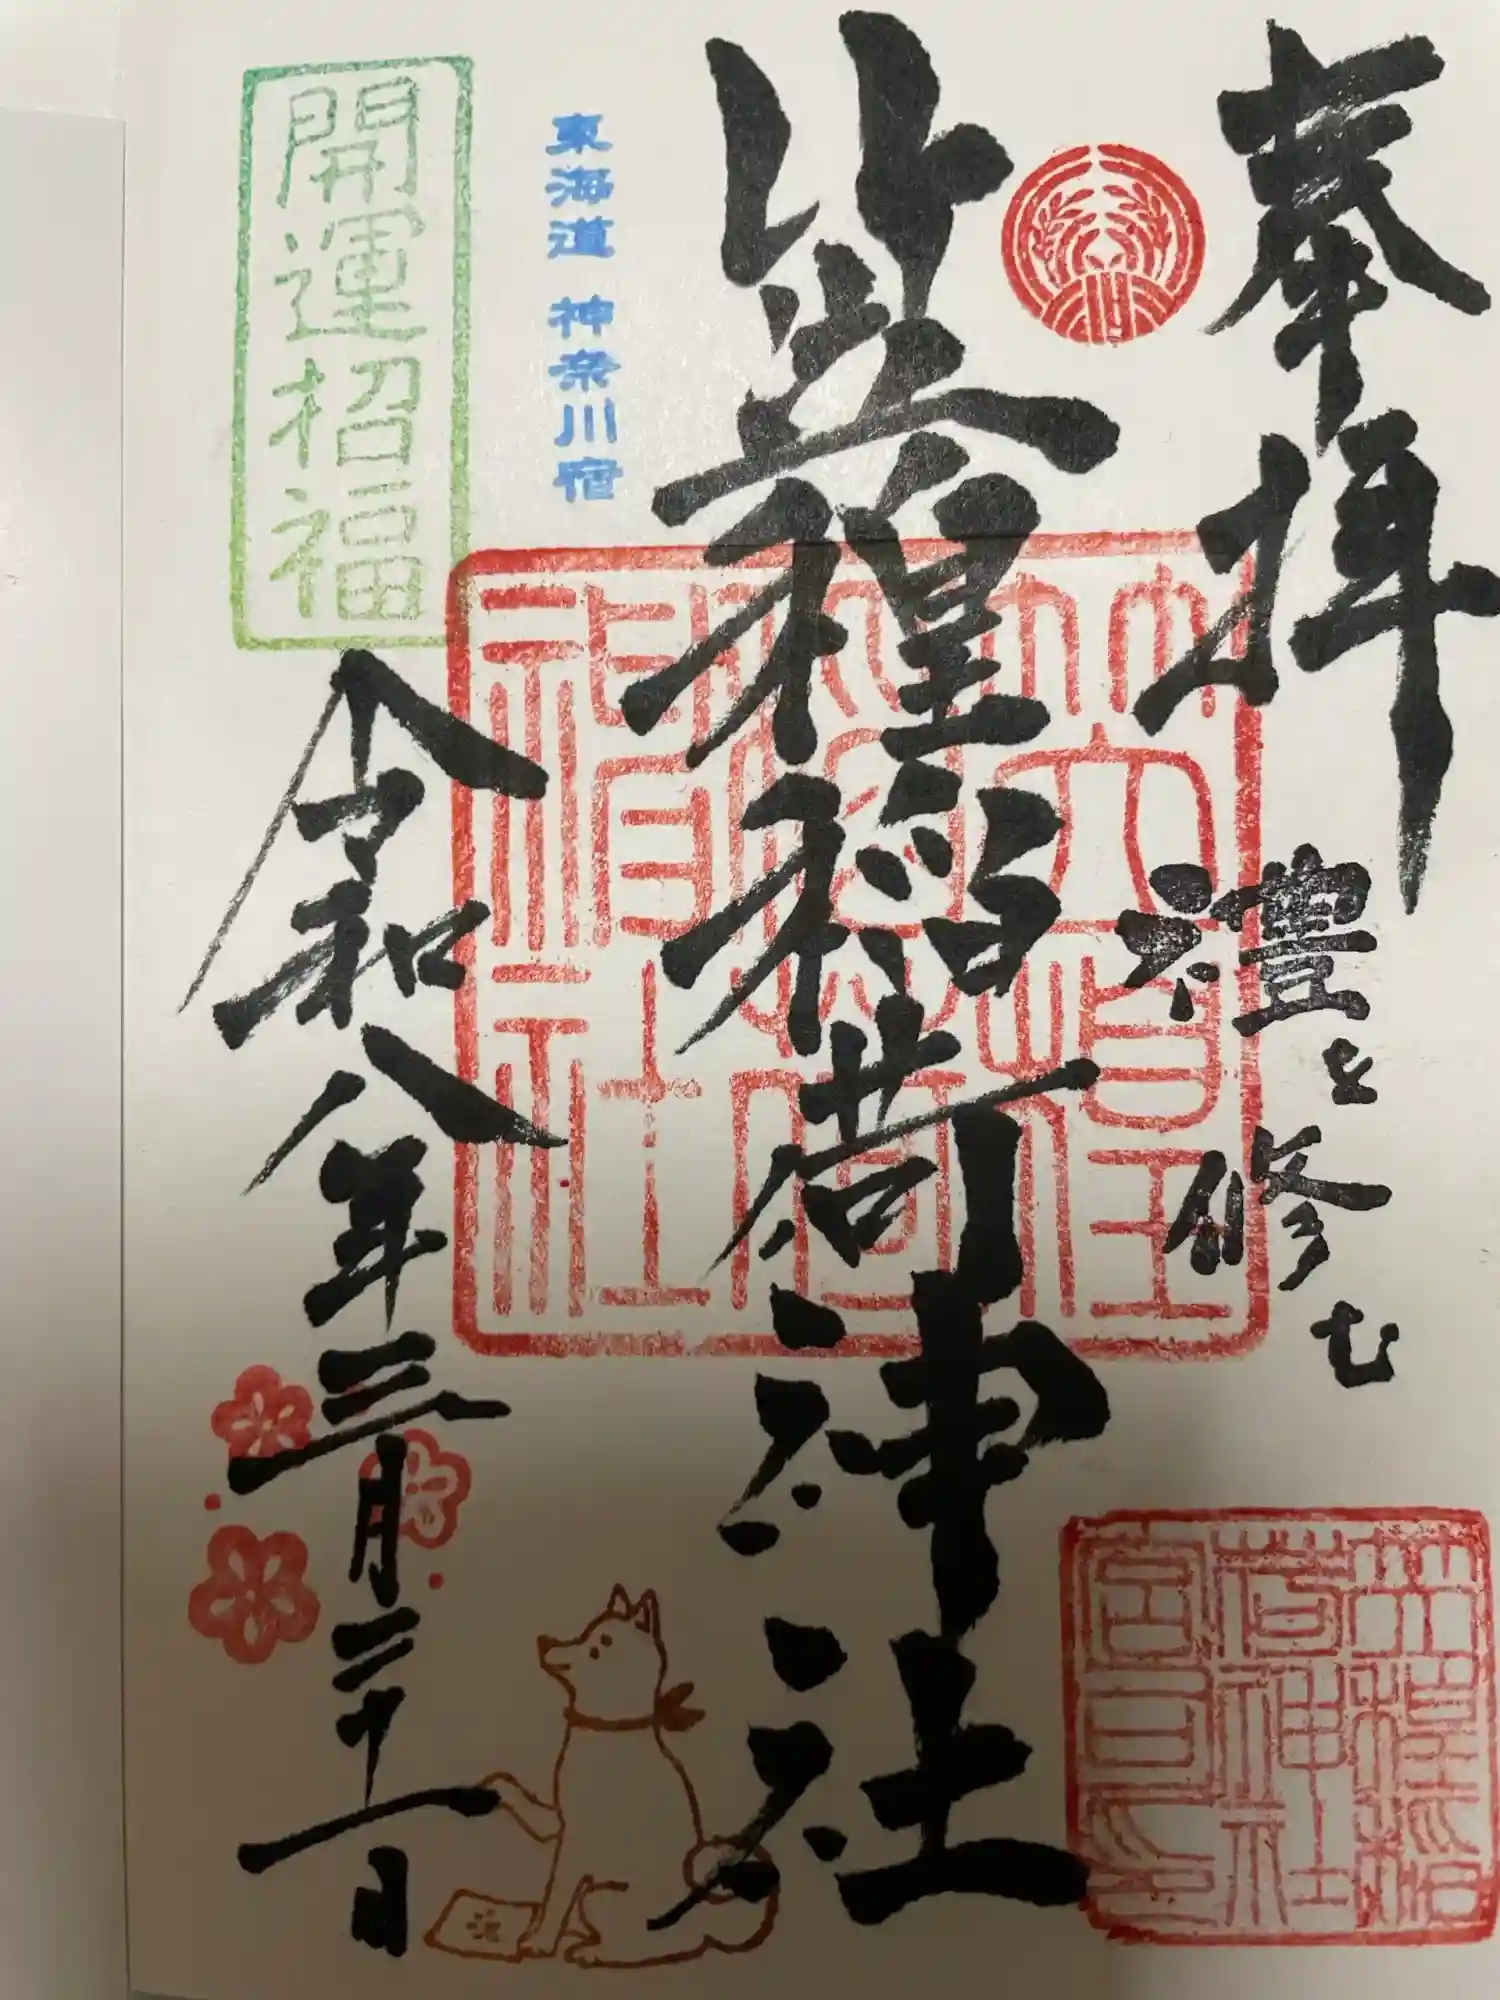 奉拝
禮を修む
笠䅣稲荷神社
東海道 神奈川宿
開運招福
令和八年三月三十一日
笠䅣
稲荷
神社
笠䅣稲
荷神社
宮司印